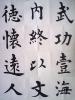 武功壹海
內終以文
德懷遠人